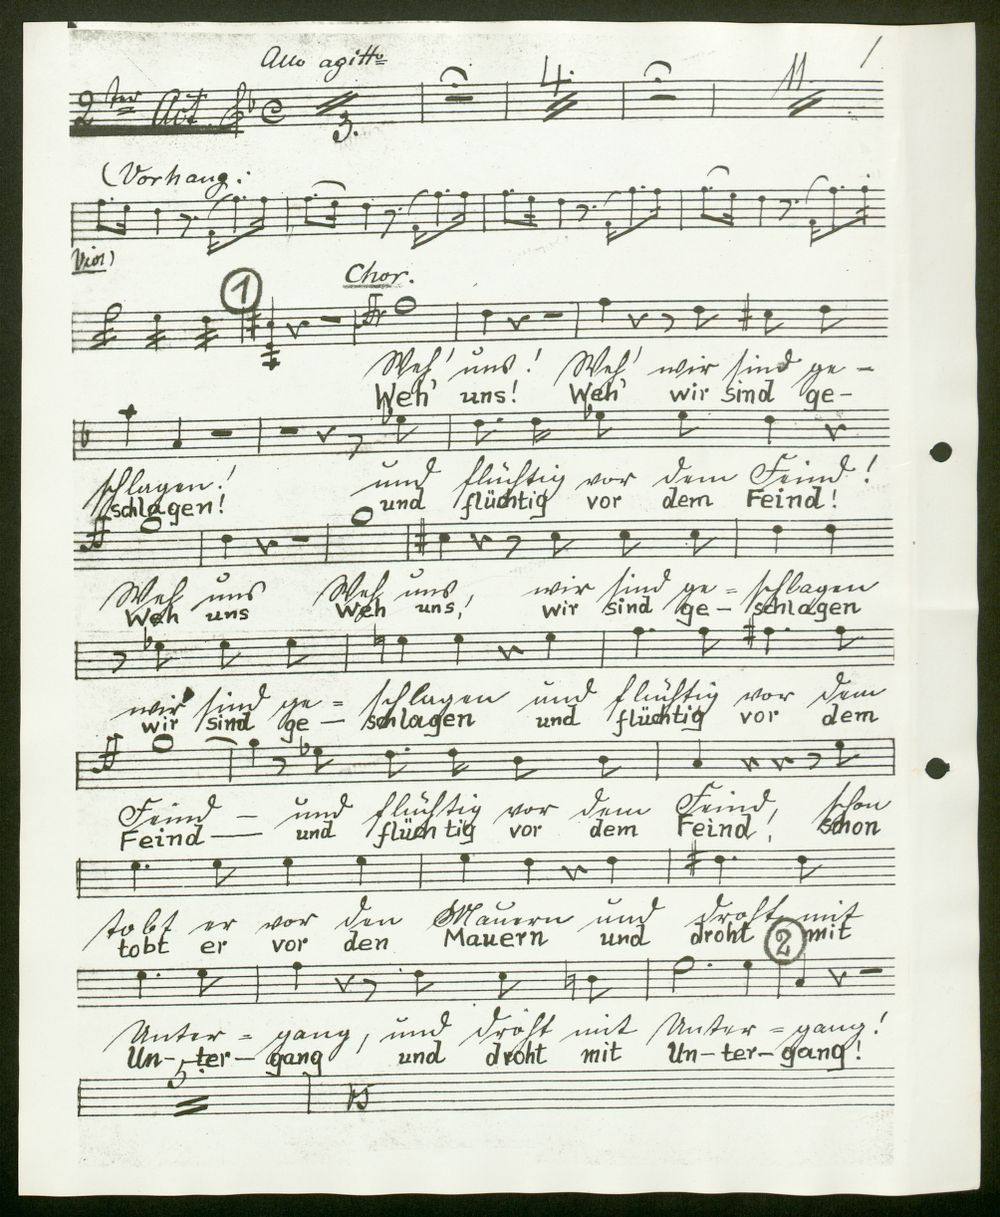 Allo agitto
1
2ter Act 3. 4. 11.
(Vorhang:
Viol)
1 Chor.
Weh' uns! Weh' wir sind ge-
Weh' uns! Weh' wir sind ge-
schlagen! und flüchtig vor dem Feind!
schlagen! und flüchtig vor dem Feind!
Weh uns Weh uns, wir sind ge=schlagen
Weh uns Weh uns, wir sind ge-schlagen
wir sind ge=schlagen und flüchtig vor dem
wir sind ge-schlagen und flüchtig vor dem
Feind - und flüchtig vor dem Feind, schon
Feind - und flüchtig vor dem Feind, schon
tobt er vor den Mauern und droht mit
tobt er vor den Mauern und droht mit
2
Unter=gang, und droht mit Unter=gang!
Un-ter-gang und droht mit Un-ter-gang!
5.